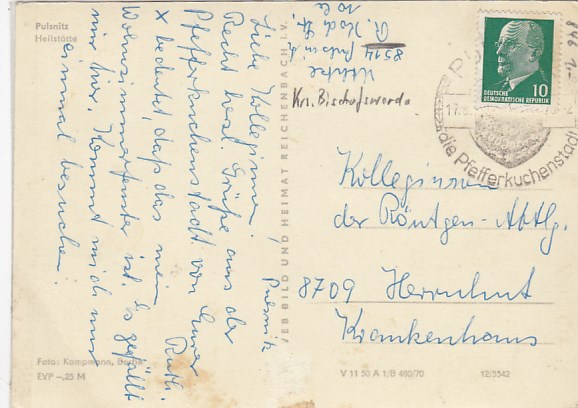 Pulsnitz
Heilstätte
Pulsnitz
Liebe Kolleginnen!
Recht herzl. Grüße aus der
Pfefferkuchenstadt von Eurer
Ruth.
x bedeutet, daß das mein
Wohnzimmerfenster ist. Es gefällt
mir hier. Kommt mich nur
einmal besuchen.
Foto: Kampmann, Berlin
EVP -,25 M
VEB BILD UND HEIMAT REICHENBACH i. V.
8514 Pulsnitz
R. Koch Str.
10c
Krs. Bischofswerda
846 2.-
10
DEUTSCHE
DEMOKRATISCHE REPUBLIK
die Pfefferkuchenstadt
Kolleginnen
der Röntgen-Abtlg.
8709 Herrnhut
Krankenhaus
V 11 50 A 1/B 460/70
12/5542